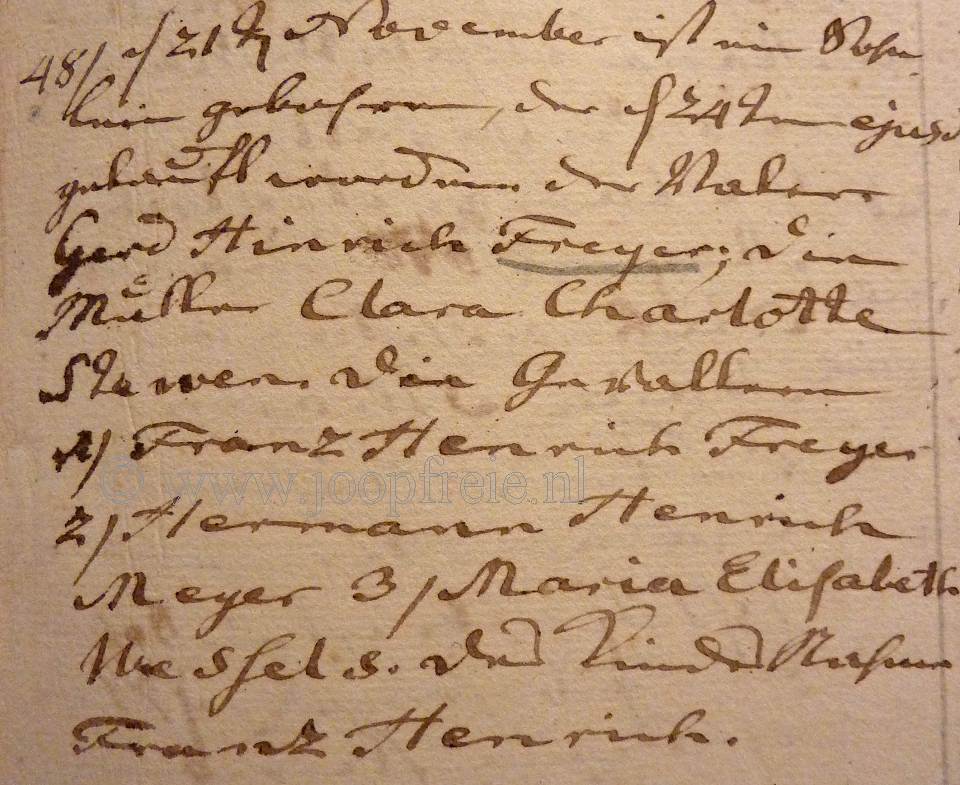 48) d 21ten November ist ein Söhn
lein gebohren, der d 24ten ejusd
getauft worden. der Vater
Gerd Hinrich Freyer; die
Mutter Clara Charlotte
Stüwen. die Gevattern
1) Franz Henrich Freyer
© www.joopfreie.nl
2) Hermann Henrich
Meyer 3) Maria Elisabeth
Wessels. des Kindes Nahme
Franz Henrich.